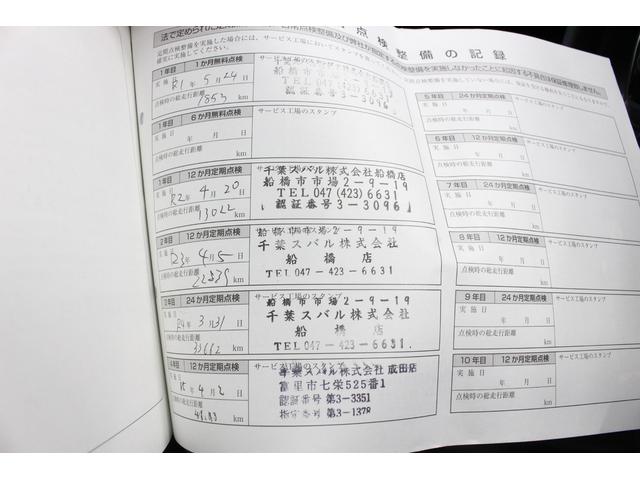 点検整備の記録
定期点検整備を実施した場合には、サービス工場においてスタンプを
確実に実施してください。
1年目 1か月無料点検
サービス工場のスタンプ
実施日 R1年 5月 24日
点検時の総走行距離
1853 km
認証番号3-3096
1年目 6か月無料点検
サービス工場のスタンプ
実施日 年 月 日
点検時の総走行距離
km
1年目 12か月定期点検
実施日 R2年 4月 20日
点検時の総走行距離
13022 km
千葉スバル株式会社船橋店
船橋市市場2-9-19
TEL 047(423)6631
認証番号3-3096
2年目 12か月定期点検
サービス工場のスタンプ
実施日 R3年 4月 5日
点検時の総走行距離
km
船橋市市場2-9-19
千葉スバル株式会社
船橋店
TEL 047-423-6631
24か月定期点検
サービス工場のスタンプ
実施日 R4年 3月 31日
点検時の総走行距離
33662 km
船橋市市場2-9-19
千葉スバル株式会社
船橋店
TEL 047-423-6631
12か月定期点検
サービス工場のスタンプ
年 4月 2日
点検時の総走行距離
km
千葉スバル株式会社 成田店
富里市七栄525番1
認証番号 第3-3351
指定番号 第3-1378
5年目 24か月定期点検
サービス工場のスタンプ
実施日 年 月 日
点検時の総走行距離
km
6年目 12か月定期点検
サービス工場のスタンプ
実施日 年 月 日
点検時の総走行距離
km
7年目 24か月定期点検
サービス工場のスタンプ
実施日 年 月 日
点検時の総走行距離
km
8年目 12か月定期点検
サービス工場のスタンプ
実施日 年 月 日
点検時の総走行距離
km
9年目 24か月定期点検
サービス工場のスタンプ
実施日 年 月 日
点検時の総走行距離
km
10年目 12か月定期点検
サービス工場のスタンプ
実施日 年 月 日
点検時の総走行距離
km